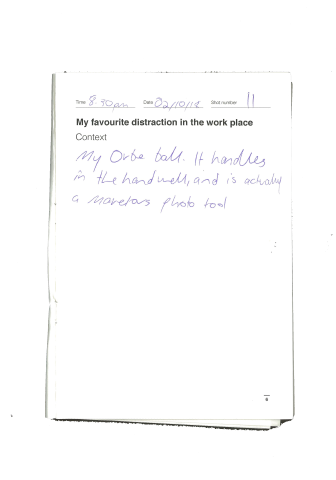 Time 8.30am Date 02/10/12 Shot number 11
My favourite distraction in the work place
Context
My Orbe ball. It handles
in the hand well, and is actually
a marvelous photo tool
6